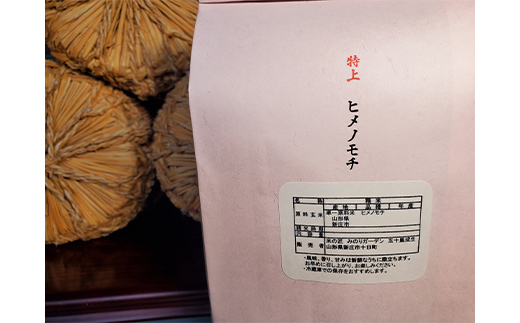 特上
ヒメノモチ
名称 精米
産地 品種 年産
原料玄米 単一原料米 ヒメノモチ
山形県
新庄市
内容量
精米時期
販売者 米の匠 みのりガーデン 五十嵐
山形県新庄市十日町
・風味、香り、甘みは新鮮なうちに限立ちます。
お早めに召し上がり、お楽しみください。
・冷蔵庫での保存をおすすめします。